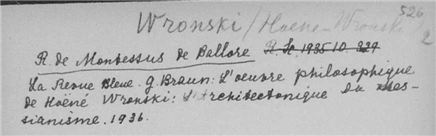 Wronski/Hoene-Wronski
526
2
R. de Montessus de Ballore H. Sc. 1935 10 329
La Revue Bleue. G. Braun: L'oeuvre philosophique
de Hoëné Wronski: L'Architectonique du Mes-
sianisme. 1936.